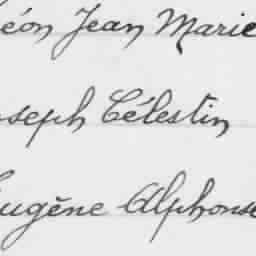 éon Jean Marie
oseph Célestin
Eugène Alphonse